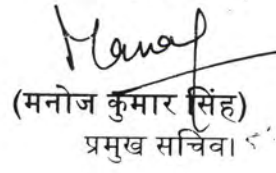 Manoj
(मनोज कुमार सिंह)
प्रमुख सचिव।